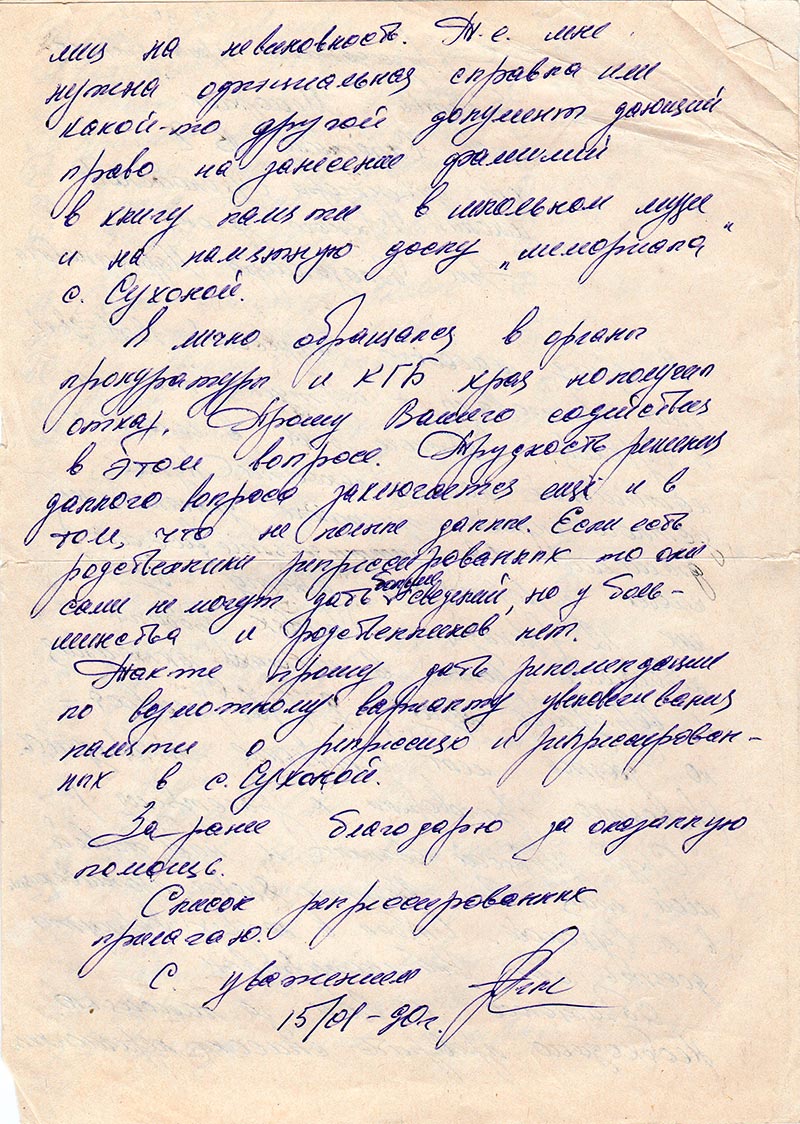 лиц на невиновность. Т.е. мне
нужна официальная справка или
какой-то другой документ дающий
право на занесение фамилий
в книгу памяти в школьном музее
и на памятную доску „мемориала"
с. Сухоной.
Я лично обращался в органы
прокуратуры и КГБ края но получил
отказ. Прошу Вашего содействия
в этом вопросе. Трудность решения
данного вопроса заключается ещё и в
том, что не полные данные. Если есть
родственники репрессированных то они
сами не могут дать больше сведений, но у боль-
шинства и родственников нет.
Также прошу дать рекомендации
по возможному варианту увековечивания
памяти о репрессиях и репрессирован-
ных в с. Сухоной.
За ранее благодарю за оказанную
помощь.
Список репрессированных
прилагаю.
С уважением
15/01-90г.